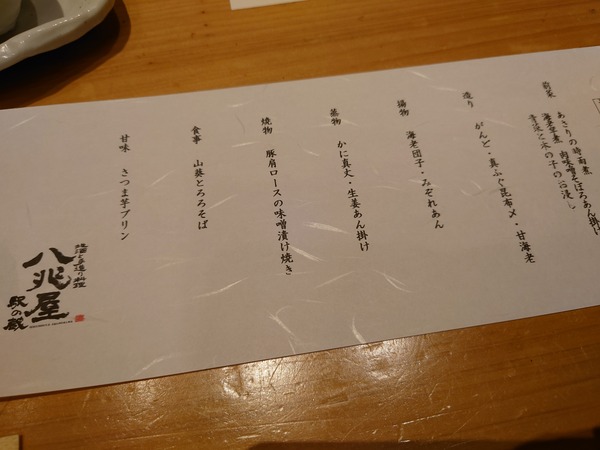 前菜
あさりの時雨煮
海老芋煮 肉味噌そぼろあん掛け
青菜と木の子のお浸し
造り がんど・真ふぐ昆布〆・甘海老
揚物 海老団子・みぞれあん
蒸物 かに真丈・生姜あん掛け
焼物 豚肩ロースの味噌漬け焼き
食事 山葵とろろそば
甘味 さつま芋プリン
地酒と手造り料理
八兆屋
駅の蔵